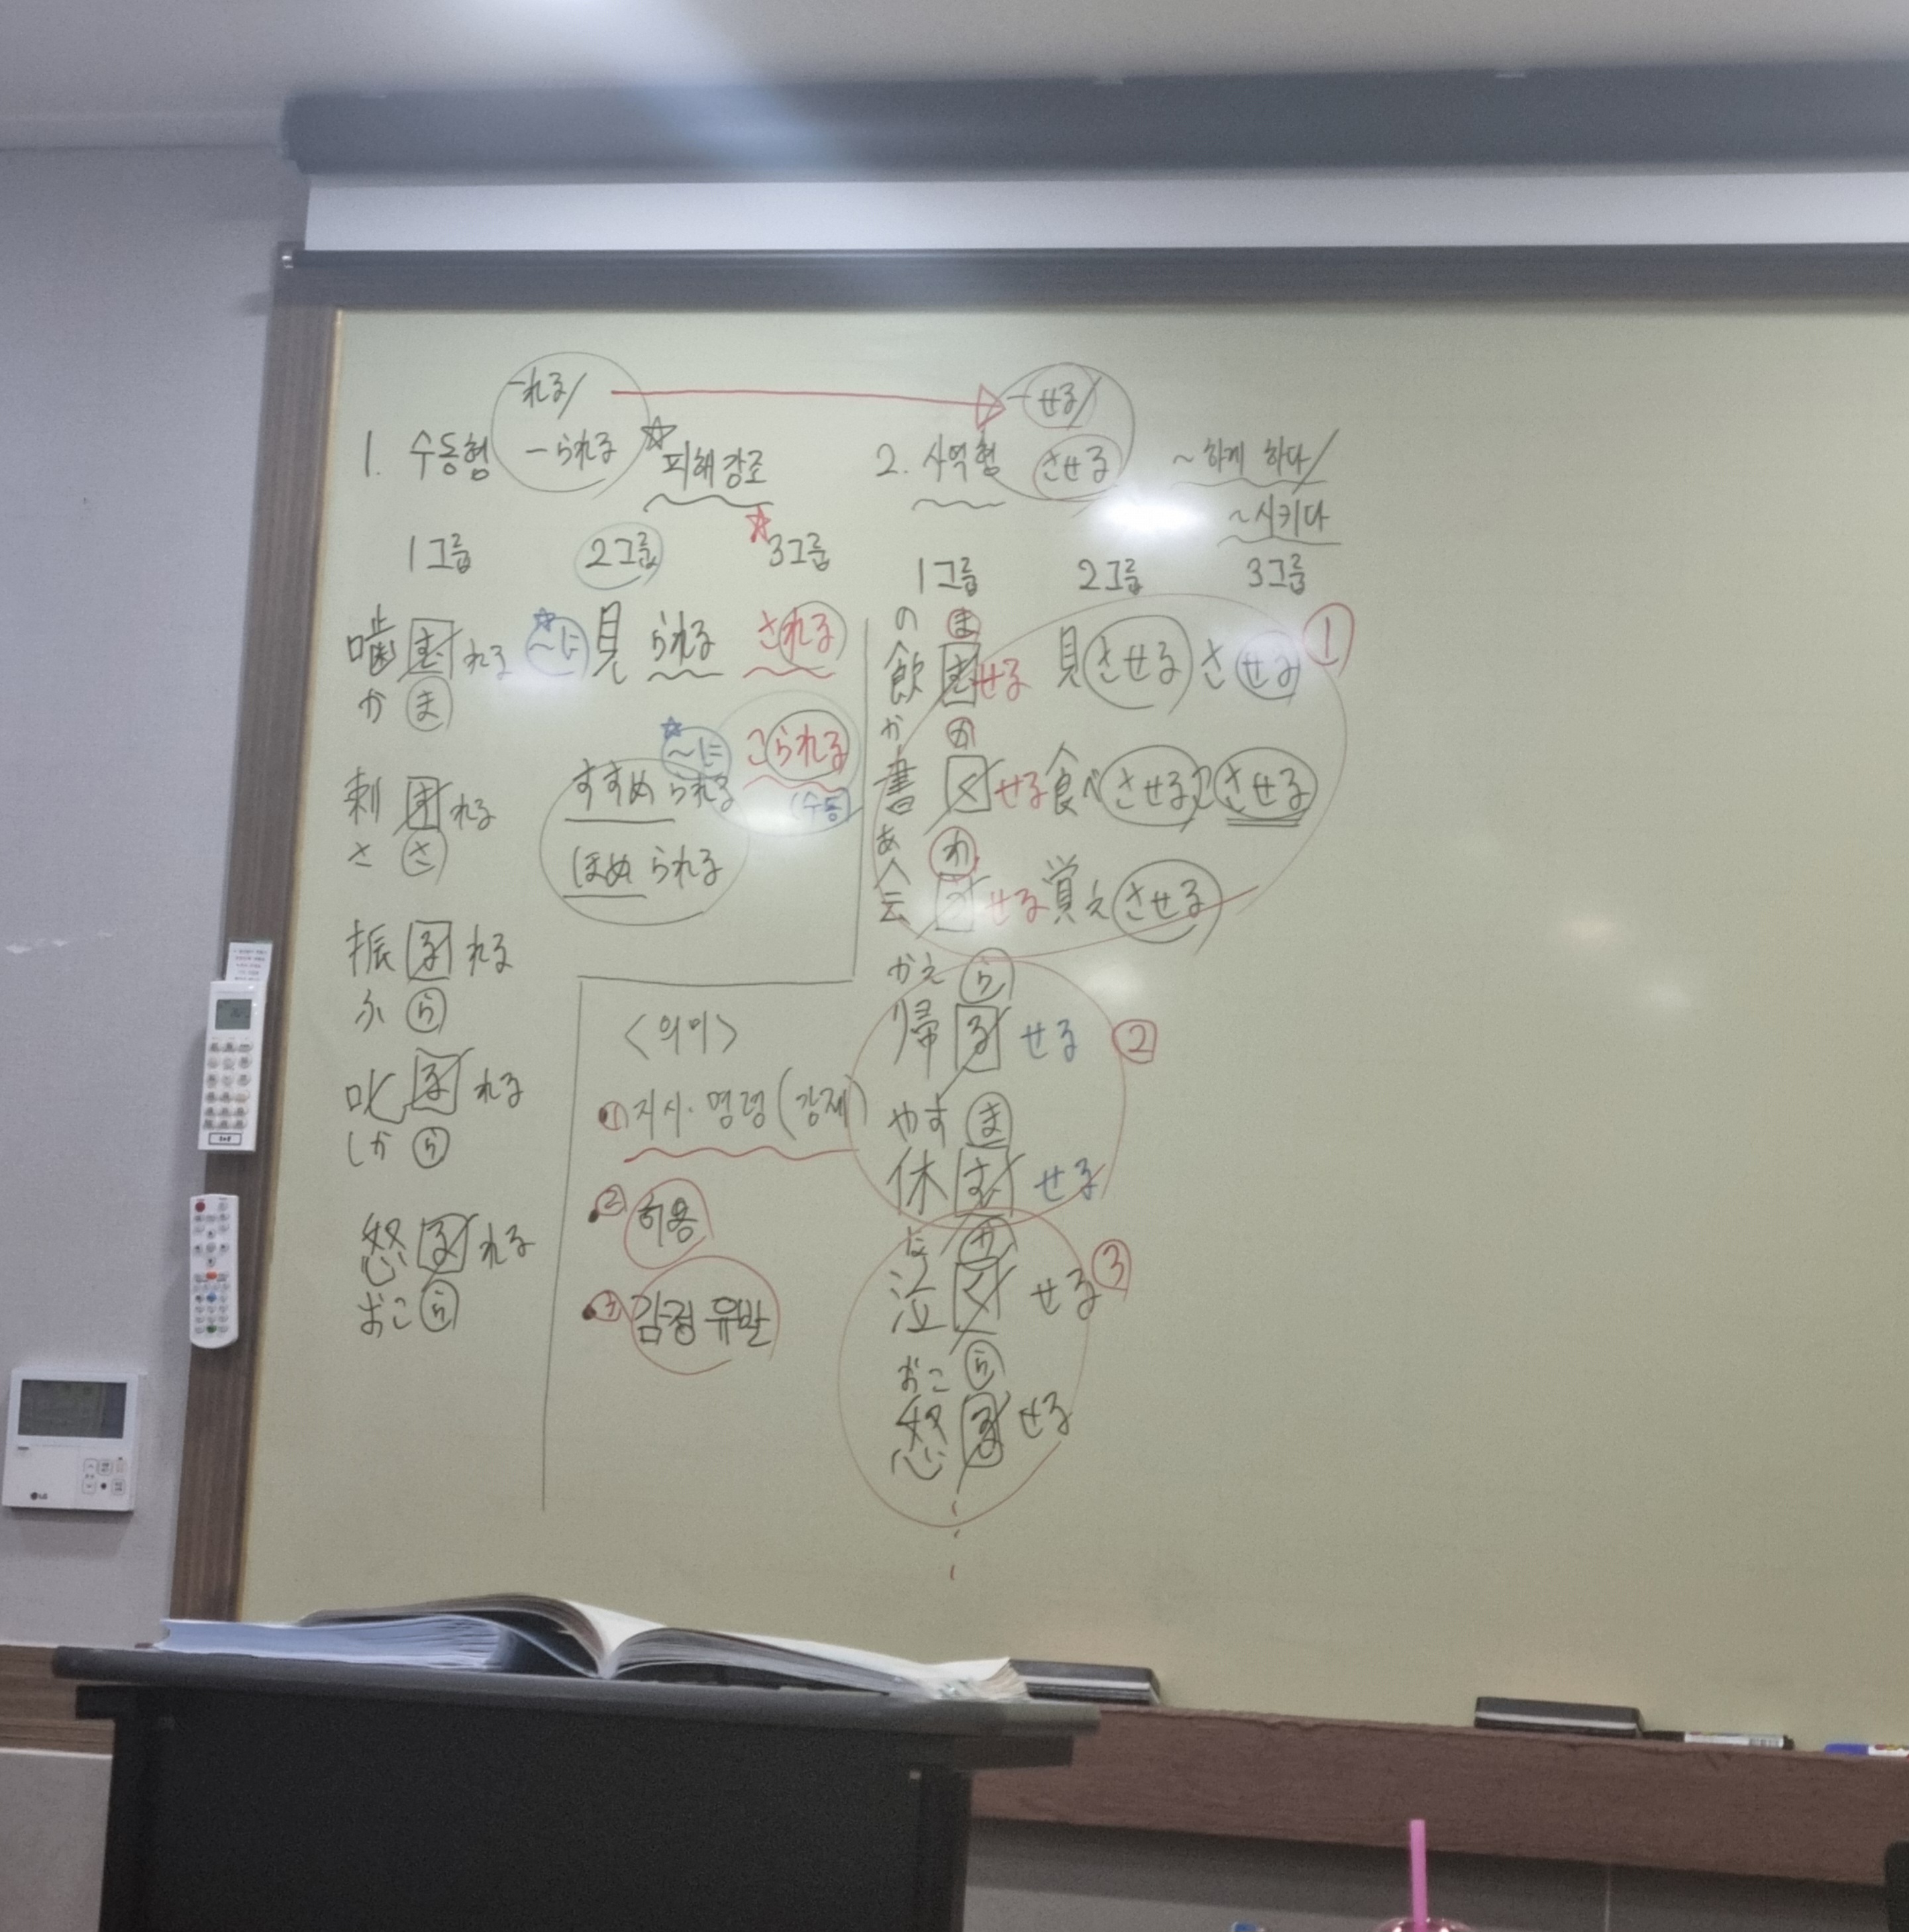 1. 수동형 -れる/
-られる
☆ 피해강조
1그룹 2그룹 ☆ 3그룹
噛むれる
かま
☆ ~に 見られる される
刺すれる
ささ
☆ ~に こられる
(수동
すすめられる
ほめられる
振るれる
ふら
叱るれる
しから
怒るれる
おこら
<의미>
① 지시·명령(강제)
② 허용
③ 감정 유발
2. 사역형 -せる/
させる
~하게 하다/
~시키다
1그룹 2그룹 3그룹
のま
飲むせる 見させる させる ①
かか
書くせる 食べさせる こさせる
あわ
会うせる 覚えさせる
かえら
帰るせる ②
やすま
休むせる
なか
泣くせる ③
おこら
怒るせる
LG